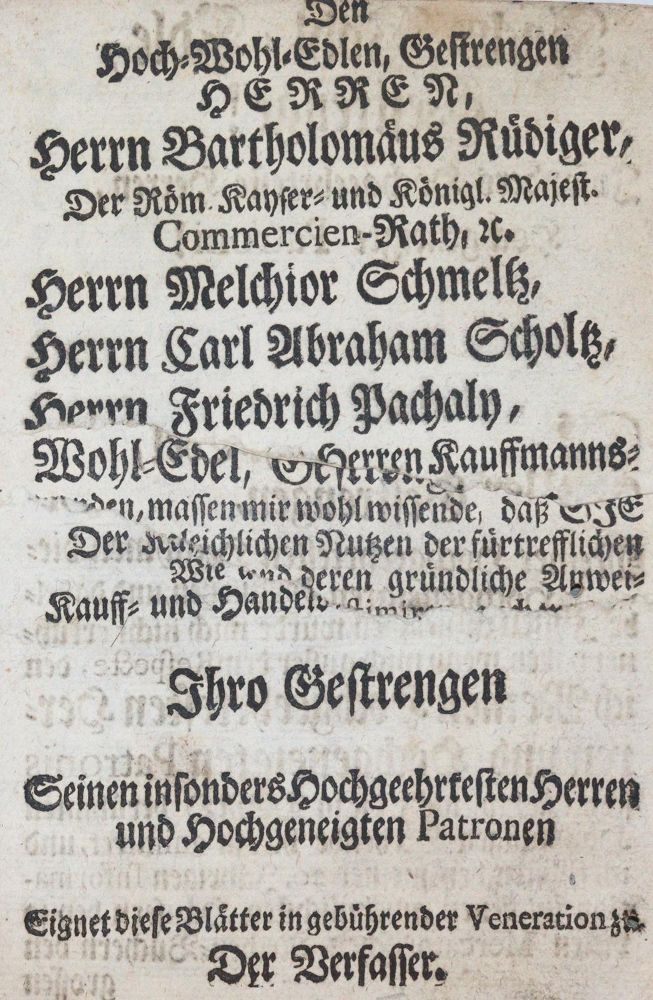 Den
Hoch-Wohl-Edlen, Gestrengen
HERREN,
Herrn Bartholomäus Rüdiger,
Der Röm. Kayser- und Königl. Majest.
Commercien-Rath, ꝛc.
Herrn Melchior Schmeltz,
Herrn Carl Abraham Scholtz,
Herrn Friedrich Pachaly,
Wohl-Edel, Herren Kauffmanns-
massen mir wohl wissende, daß SIE
Der Nutzen der fürtrefflichen
Wie deren gründliche Anwei-
Kauff- und
Ihro Gestrengen
Seinen insonders Hochgeehrtesten Herren
und Hochgeneigten Patronen
Eignet diese Blätter in gebührender Veneration zu.
Der Verfasser.